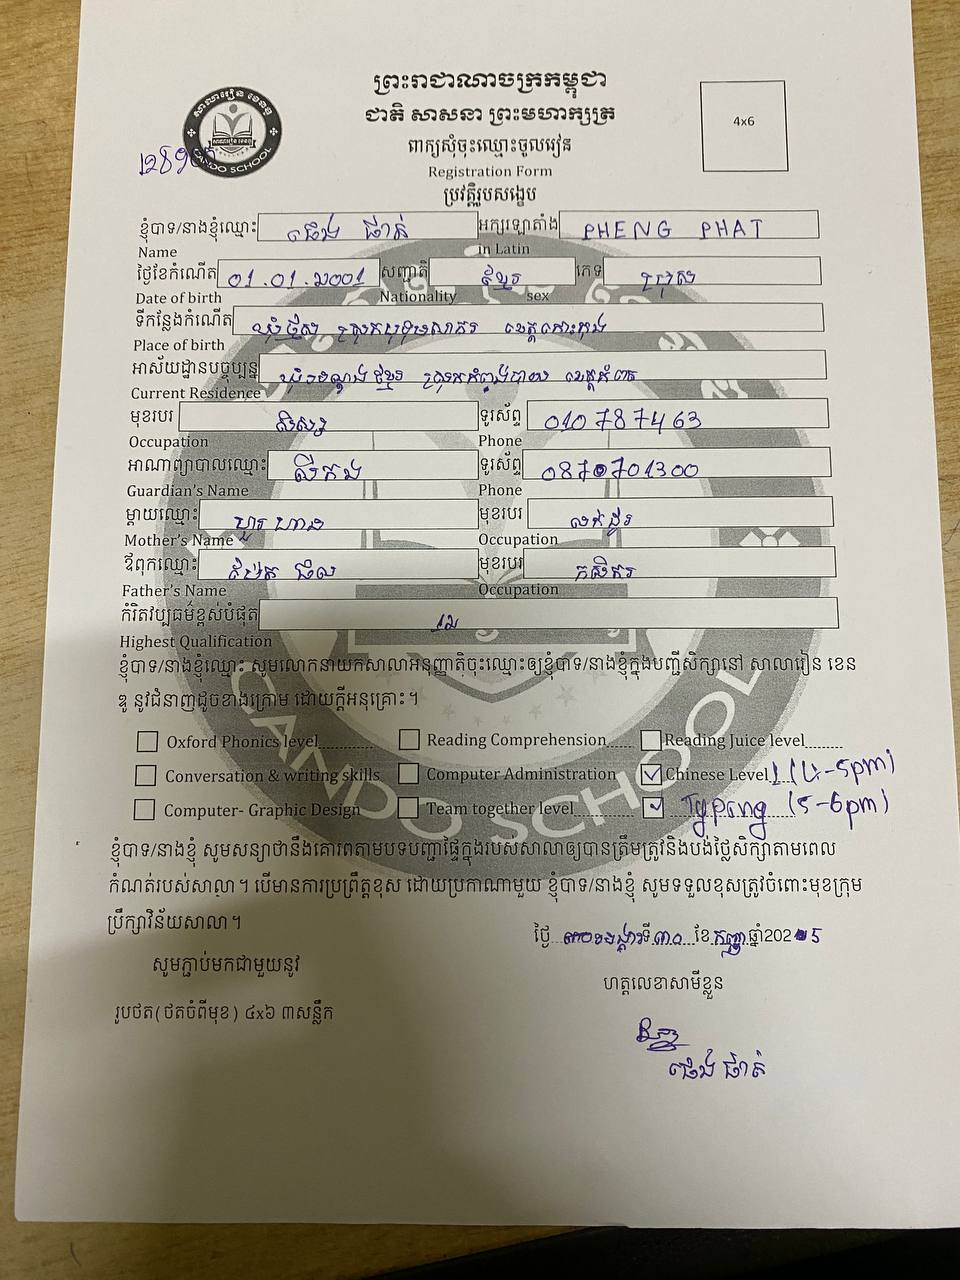 ព្រះរាជាណាចក្រកម្ពុជា
ជាតិ សាសនា ព្រះមហាក្សត្រ
4x6
សាលារៀន ខេនឌូ
CANDO SCHOOL
ពាក្យសុំចុះឈ្មោះចូលរៀន
Registration Form
ប្រវត្តិរូបសង្ខេប
ខ្ញុំបាទ/នាងខ្ញុំឈ្មោះ ផេង ផាត់ អក្សរឡាតាំង PHENG PHAT
Name in Latin
ថ្ងៃខែកំណើត 01.01.2001 សញ្ជាតិ ខ្មែរ ភេទ ប្រុស
Date of birth Nationality sex
ទីកន្លែងកំណើត ស្រុកបុទុមសាគរ ខេត្តកោះកុង
Place of birth
អាស័យដ្ឋានបច្ចុប្បន្ន ខេត្តកំពត
Current Residence
មុខរបរ សិស្ស ទូរស័ព្ទ 010 787463
Occupation Phone
អាណាព្យាបាលឈ្មោះ ទូរស័ព្ទ 0870701300
Guardian's Name Phone
ម្តាយឈ្មោះ មុខរបរ លក់ដូរ
Mother's Name Occupation
ឪពុកឈ្មោះ មុខរបរ កសិករ
Father's Name Occupation
កំរិតវប្បធម៌ខ្ពស់បំផុត
Highest Qualification
ខ្ញុំបាទ/នាងខ្ញុំឈ្មោះ សូមលោកនាយកសាលាអនុញ្ញាតិចុះឈ្មោះឲ្យខ្ញុំបាទ/នាងខ្ញុំក្នុងបញ្ជីសិក្សានៅ សាលារៀន ខេន
ឌូ នូវជំនាញដូចខាងក្រោម ដោយក្តីអនុគ្រោះ។
Oxford Phonics level Reading Comprehension Reading Juice level
Conversation & writing skills Computer Administration Chinese Level 1 (4-5pm)
Computer- Graphic Design Team together level Typing (5-6pm)
CANDO SCHOOL
ខ្ញុំបាទ/នាងខ្ញុំ សូមសន្យាថានឹងគោរពតាមបទបញ្ជាផ្ទៃក្នុងរបស់សាលាឲ្យបានត្រឹមត្រូវនិងបង់ថ្លៃសិក្សាតាមពេល
កំណត់របស់សាលា។ បើមានការប្រព្រឹត្តខុស ដោយប្រកាណាមួយ ខ្ញុំបាទ/នាងខ្ញុំ សូមទទួលខុសត្រូវចំពោះមុខក្រុម
ប្រឹក្សាវិន័យសាលា។
ថ្ងៃ ទី៣០ ខែ កញ្ញា ឆ្នាំ2025
សូមភ្ជាប់មកជាមួយនូវ
ហត្ថលេខាសាមីខ្លួន
រូបថត(ថតចំពីមុខ) ៤x៦ ៣សន្លឹក
ផេង ផាត់